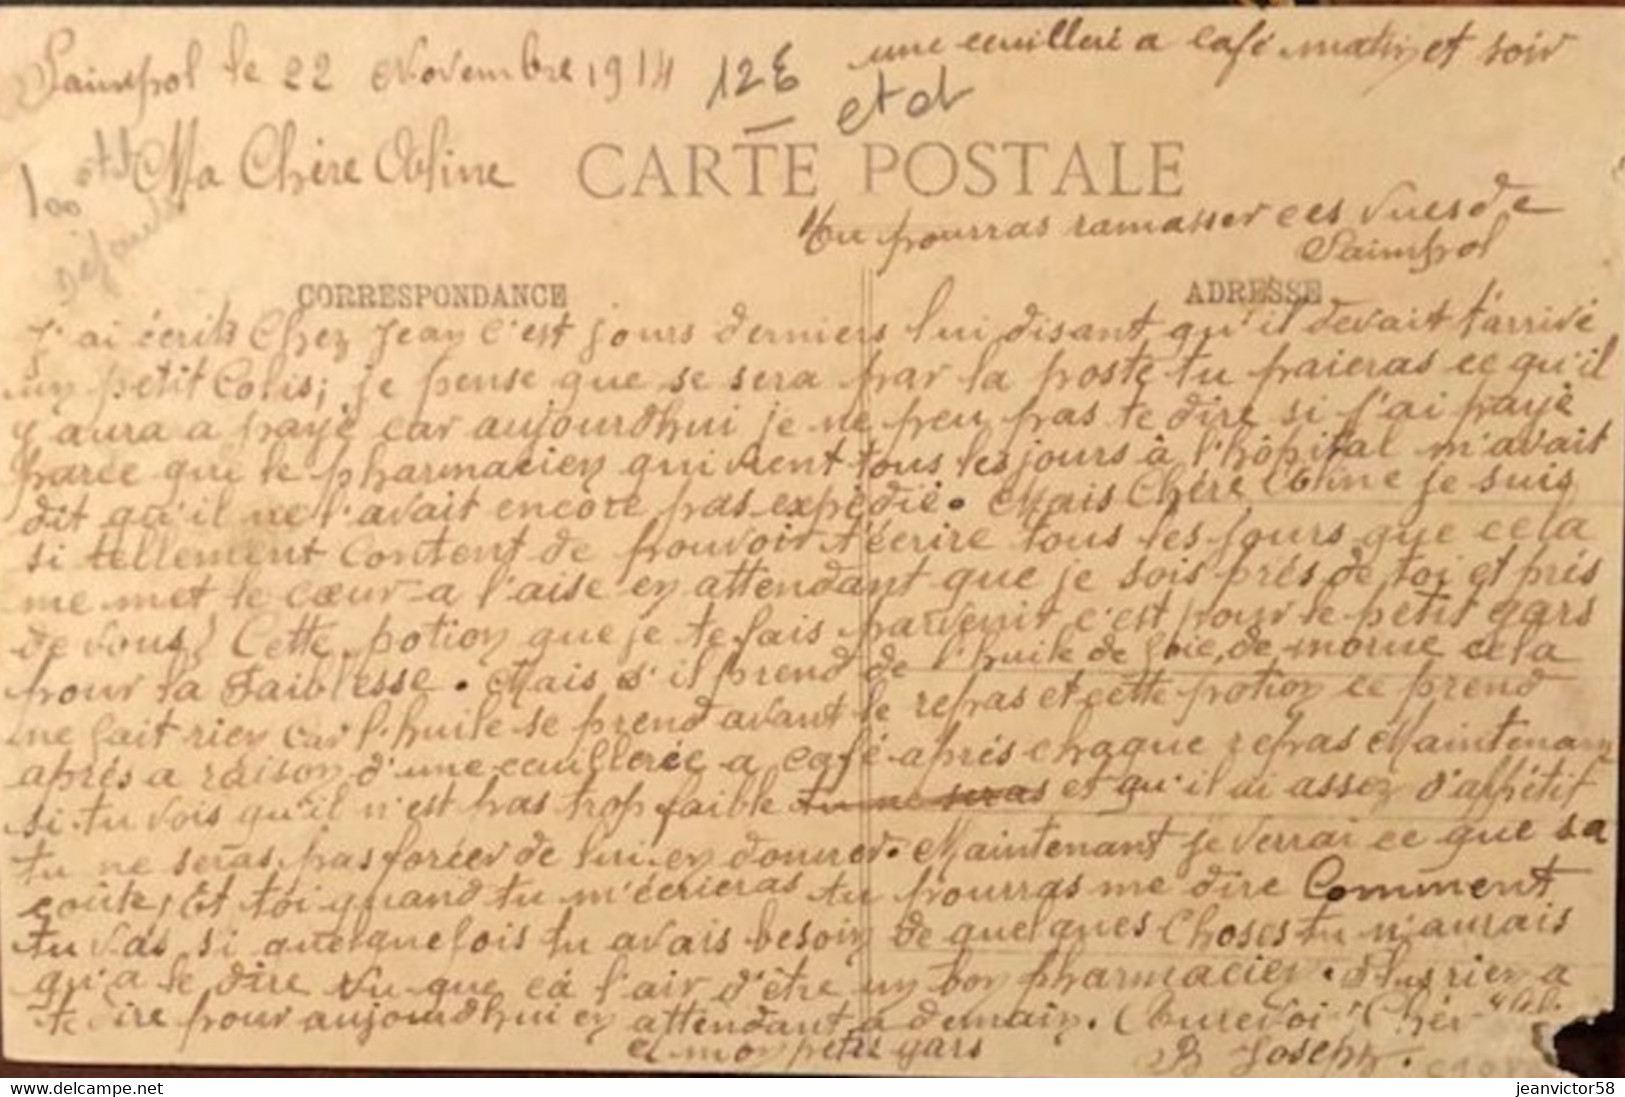 une ceuilleré a café matin et soir
Saimpol le 22 Novembre 1914 12 E
et d
100
Ma Chère Obline
CARTE POSTALE
Tu pourras ramasser ces vues de
Saimpol
CORRESPONDANCE ADRESSE
J'ai écrits Chez Jean c'est jours derniers lui disant qu'il devait t'arrivé
un petit Colis; je pense que se sera par la poste tu paieras ce qu'il
y aura a payé car aujourdhui je ne peu pas te dire si j'ai payé
parce que le pharmacien qui vient tous les jours à l'hôpital m'avait
dit qu'il ne l'avait encore pas expédié. Mais Chére Obline je suis
si tellement Content de pouvoir t'écrire tous les jours que cela
me met le cœur a l'aise en attendant que je sois prés de toi et prés
de vous! Cette potion que je te fais parvenir c'est pour le petit gars
pour la Faiblesse. Mais s'il prend de l'huile de foie de morue cela
ne fait rien car l'huile se prend avant le repas et cette potion ce prend
aprés a raison d'une ceuillerée a café aprés chaque repas Maintenant
si tu vois qu'il n'est pas trop faible tu ne seras et qu'il ai assez d'appétif
tu ne seras pas forcéer de lui en donner. Maintenant je verrai ce que sa
coûte, Et toi quand tu m'écrieras tu pourras me dire Comment
tu vas, si quelquefois tu avais besoin de quelques Choses tu n'aurais
qu'a le dire vu que ça l'air d'être un bon pharmacien. Plus rien a
te dire pour aujourdhui en attendant a demain. Aurevoir Chér
et mon petit gars Joseph.
jeanvictor58